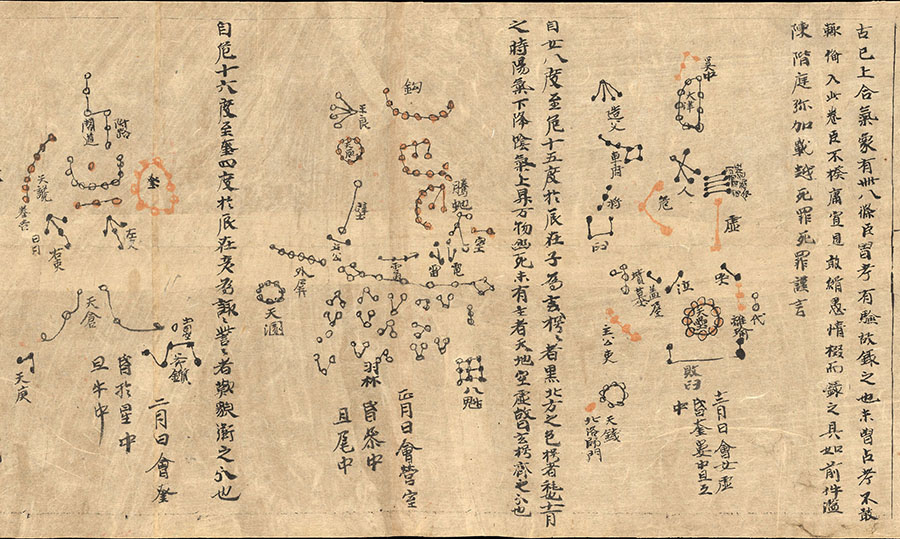 右已上合氣象有卌八條臣曾考有驗故錄之也未曾占考不敢
輒備入此卷臣不揆庸冥見敢緝愚情掇而錄之具如前件濫
陳階庭弥加戰越死罪死罪謹言
天津
造父
車府
人
危
臼
虛
哭
泣
蓋屋
墳墓
天壘
離瑜
代
敗臼
天錢
北落師門
十二月日會女虛
昏奎婁中旦互
中
自女八度至危十五度於辰在子為玄枵枵者黑北方之色枵者耗也十一月
之時陽氣下降陰氣上昇万物幽死未有生者天地空虛故曰玄枵齊之分也
鈎
王良
騰蛇
壁
土公
雷
電
空
雲雨
外屏
天溷
羽林
八魁
正月日會營室
昏參中
旦尾中
自危十六度至奎四度於辰在亥為諏訾訾者歎貌衛之分也
附路
閣道
奎
左更
右更
天倉
天庾
鈇鑕
二月日會奎
昏於星中
旦牛中